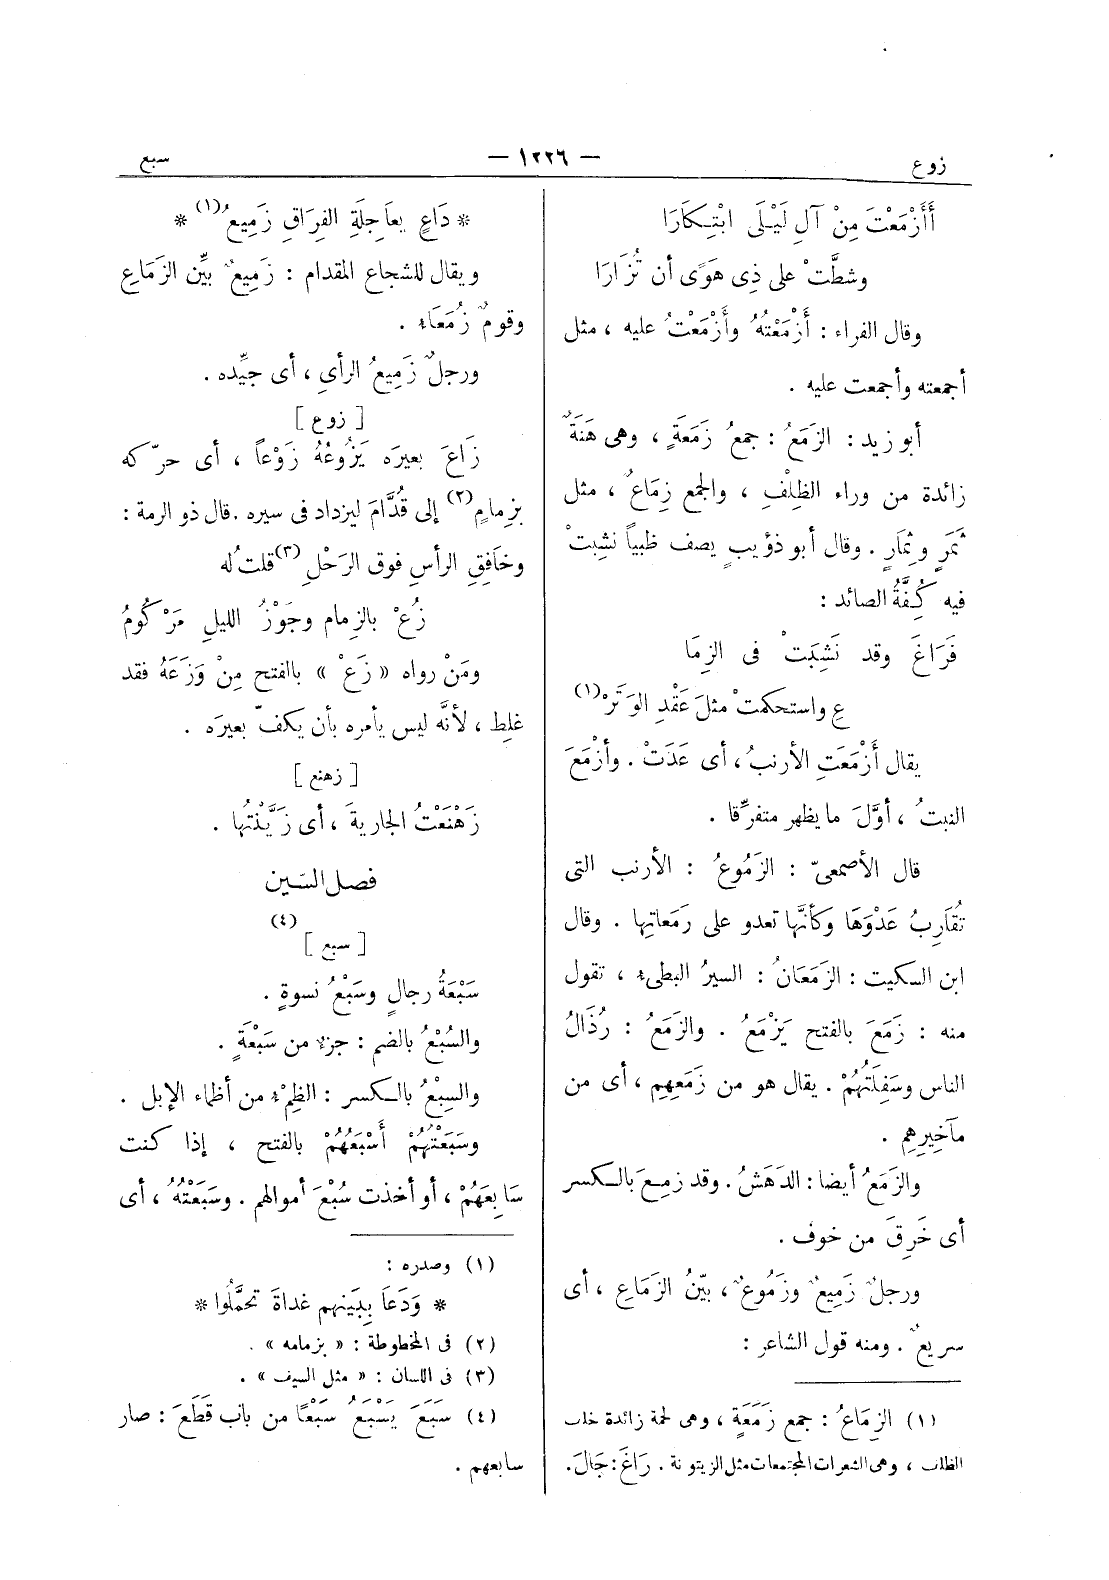 زوع
— ١٢٢٦ —
سبع
أَأَزْمَعْتَ مِنْ آلِ لَيْلَى ابْتِكَارَا
وشطَّتْ على ذِى هَوًى أن تُزَارَا
وقال الفراء : أَزْمَعْتُهُ وأَزْمَعْتُ عليه ، مثل
أجمعته وأجمعت عليه .
أبو زيد : الزَمَعُ : جمعُ زَمَعَةٍ ، وهى هَنَةٌ
زائدة من وراء الظِلْفِ ، والجمع زِمَاعٌ ، مثل
ثَمَرٍ وثِمَارٍ . وقال أبو ذؤيبٍ يصف ظبياً نشِبتْ
فيه كُِفَّةُ الصائد :
فَرَاغَ وقد نَشِبَتْ فى الزِمَا
عِ واستحكمتْ مثلَ عَقْدِ الوَتَرْ(١)
يقال أَزْمَعَتِ الأرنبُ ، أى عَدَتْ . وأَزْمَعَ
النبتُ ، أوَّلَ ما يظهر متفرِّقا .
قال الأصمعىّ : الزَمُوعُ : الأرنب التى
تُقَارِبُ عَدْوَهَا وكأنَّها تعدو على زمَعاتِها . وقال
ابن السكيت : الزَمَعَانُ : السيرُ البطىء ، تقول
منه : زَمَعَ بالفتح يَزْمَعُ . والزَمَعُ : رُذَالُ
الناس وسَفِلَتُهُمْ . يقال هو من زَمَعِهِم ، أى من
مآخيرِهِم .
والزَمَعُ أيضا : الدَهَشُ . وقد زمِعَ بالكسر
أى خَرِقَ من خوف .
ورجلٌ زَمِيعٌ وزَمُوعٌ ، بيّنُ الزَمَاعِ ، أى
سريعٌ . ومنه قول الشاعر :
(١) الزِمَاعُ : جمع زَمَعَةٍ ، وهى لحمة زائدة خلف
الظلف ، وهى الشعرات المجتمعات مثل الزيتونة . رَاغَ : جَالَ .
* دَاعٍ بعَاجِلَةِ الفِرَاقِ زَمِيعُ(١) *
ويقال للشجاع المقدام : زَمِيعٌ بيِّن الزَمَاعِ
وقومٌ زُمَعَاء .
ورجلٌ زَمِيعُ الرأىِ ، أى جيِّده .
[ زوع ]
زَاعَ بعيرَه يَزُوعُهُ زَوْعاً ، أى حرّكه
بزِمامٍ(٢) إلى قُدَّامَ ليزداد فى سيره . قال ذو الرمة :
وخَافِقِ الرأسِ فوق الرَحْلِ(٣) قلتُ له
زُعْ بالزِمام وجَوْزُ الليلِ مَرْكُومُ
ومَنْ رواه « زَعْ » بالفتح مِنْ وَزَعَهُ فقد
غلِط ، لأنَّه ليس يأمره بأن يكفّ بعيرَه .
[ زهنع ]
زَهْنَعْتُ الجاريةَ ، أى زَيَّنْتُها .
فصل السّين
(٤)
[ سبع ]
سَبْعَةُ رجالٍ وسَبْعُ نسوةٍ .
والسُبْعُ بالضم : جزء من سَبْعَةٍ .
والسِبْعُ بالكسر : الظِمْء من أظماء الإبل .
وسَبَعْتُهُمْ أَسْبَعُهُمْ بالفتح ، إذا كنت
سَابِعَهُمْ ، أو أخذت سُبْعَ أموالهم . وسَبَعْتُهُ ، أى
(١) وصدره :
* وَدَعَا بِبَيْنِهم غداةَ تحمَّلُوا *
(٢) فى المخطوطة : « بزمامه » .
(٣) فى اللسان : « مثل السيف » .
(٤) سَبَعَ يَسْبَعُ سَبْعًا من باب قَطَعَ : صار
سابعهم .